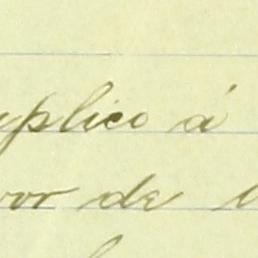 uplico á
vor de